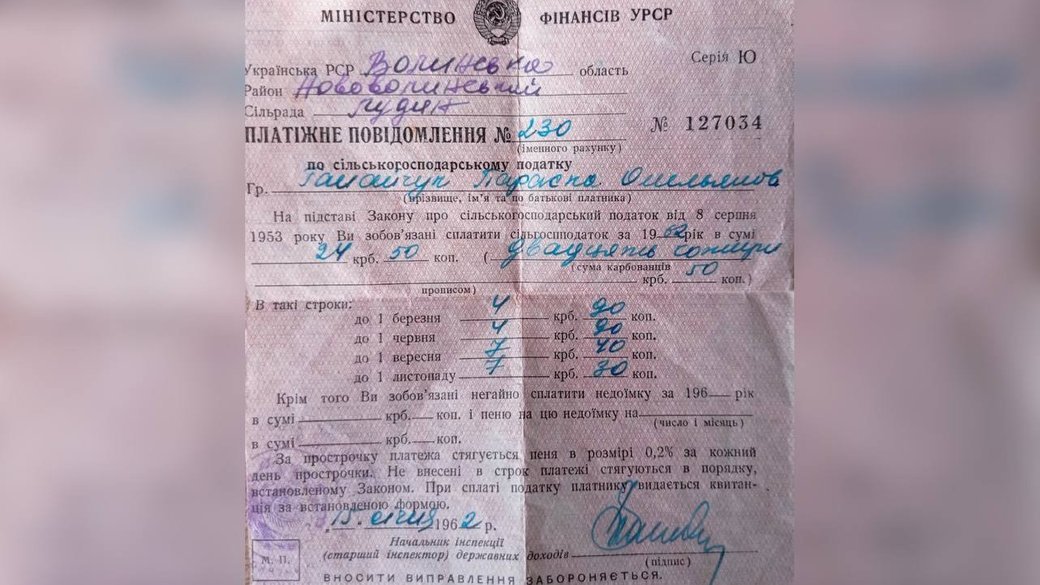 МІНІСТЕРСТВО ФІНАНСІВ УРСР
Серія Ю
Українська РСР Волинська область
Район Нововолинський
Сільрада Гудин
ПЛАТІЖНЕ ПОВІДОМЛЕННЯ № 230 № 127034
(іменного рахунку)
по сільськогосподарському податку
Гр. Параска
(прізвище, ім'я та по батькові платника)
На підставі Закону про сільськогосподарський податок від 8 серпня
1953 року Ви зобов'язані сплатити сільгоспподаток за 1962 рік в сумі
24 крб. 50 коп. (двадцять чотири
(сума карбованців
50
крб. коп.)
прописом)
В такі строки:
до 1 березня 4 крб. 90 коп.
до 1 червня 4 крб. 90 коп.
до 1 вересня 7 крб. 40 коп.
до 1 листопаду 7 крб. 30 коп.
Крім того Ви зобов'язані негайно сплатити недоїмку за 196 рік
в сумі крб. коп. і пеню на цю недоїмку на
(число і місяць)
в сумі крб. коп.
За прострочку платежа стягується пеня в розмірі 0,2% за кожний
день прострочки. Не внесені в строк платежі стягуються в порядку,
встановленому Законом. При сплаті податку платнику видається квитан-
ція за встановленою формою.
15 січня 1962 р.
Начальник інспекції
(старший інспектор) державних доходів
(підпис)
М. П.
ВНОСИТИ ВИПРАВЛЕННЯ ЗАБОРОНЯЄТЬСЯ.